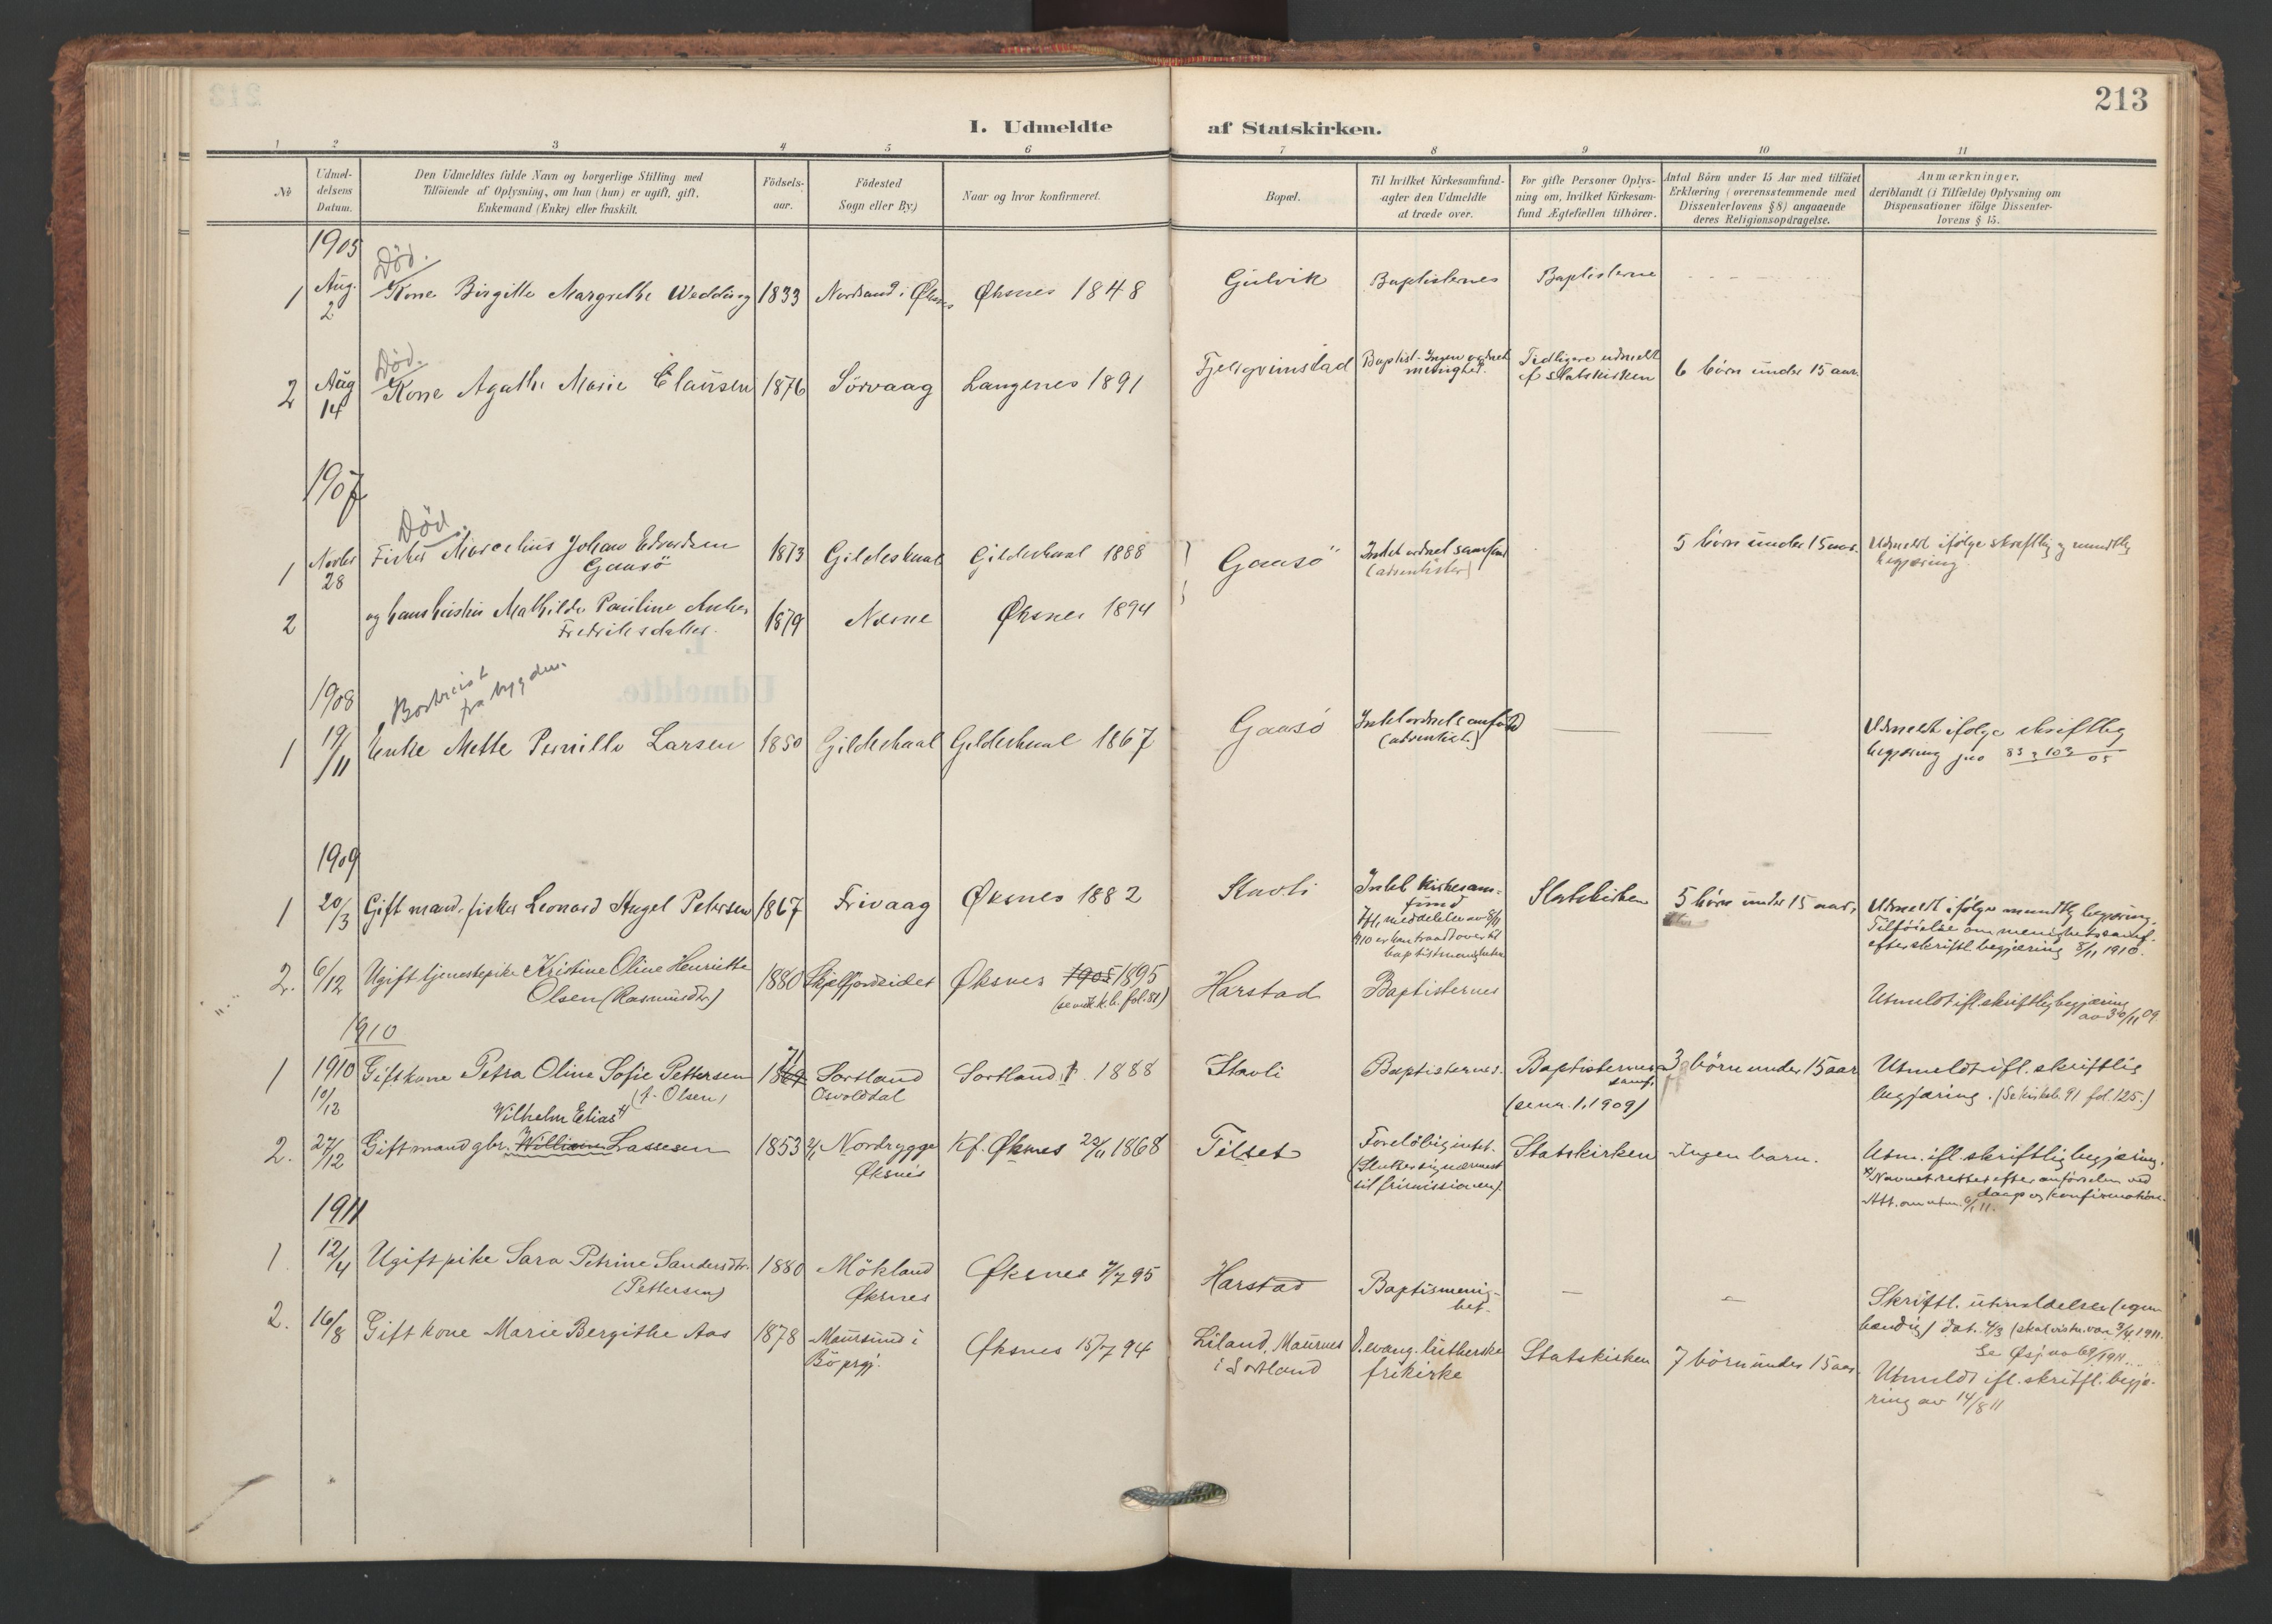 213
I. Udmeldte af Statskirken.
1 2 3 4 5 6 7 8 9 10 11
No
Udmel-
delsens
Datum.
Den Udmeldtes fulde Navn og borgerlige Stilling med
Tilføiende af Oplysning, om han (hun) er ugift, gift,
Enkemand (Enke) eller fraskilt.
Fødsels-
aar.
Fødested
Sogn eller By.)
Naar og hvor konfirmeret.
Bopæl.
Til hvilket Kirkesamfund-
agter den Udmeldte
at træde over.
For gifte Personer Oplys-
ning om, hvilket Kirkesam-
fund Ægtefællen tilhører.
Antal Børn under 15 Aar med tilføiet
Erklæring (overensstemmende med
Dissenterlovens § 8) angaaende
deres Religionsopdragelse.
Anmærkninger,
deriblandt (i Tilfælde) Oplysning om
Dispensationer ifølge Dissenter-
lovens § 15.
1905
Død.
1 Aug. 2 Kone Birgitte Margrethe Wedding 1833 Nordsand i Øksnes Øksnes 1848 Gulvik Baptisternes Baptisterne
Død.
2 Aug 14 Kone Agathe Marie Clausen 1876 Sörvaag Langenes 1891 Fjelgrimstad Baptist- Ingen ordnet
menighed. Tidligere udmeldt
af Statskirken 6 börn under 15 aar.
1907
Død.
1 Novbr 28 Fisker Marcelius Johan Edvardsen
Gaasö 1873 Gildeskaal Gildeskaal 1888 Gaasö Intet ordnet samfund
(adventister) 5 börn under 15 aar. Udmeldt ifölge skriftlig og mundtlig
begjæring
2 og hans hustru Mathilde Pauline Anker
Fredriksdatter. 1879 Næsne Øksnes 1894
1908
Bortreist
fra bygden.
1 19/11 Enke Mette Pernille Larsen 1850 Gildeskaal Gildeskaal 1867 Gaasö Intet ordnet samfund
(adventist.) — — Udmeldt ifølge skriftlig
begjæring jno 83 & 103 05
1909
1 20/3 Gift mand, fisker Leonard Angel Petersen 1867 Frivaag Øksnes 1882 Stavli Intet Kirkesam-
fund
Ifl. meddelelse av 8/11
1910 er han traadt over til
baptistmenigheten Statskirken 5 börn under 15 aar, Udmeldt ifølge mundtlig begjæring.
Tilföielse om menighetssamf.
efter skriftl. begjæring 8/11 1910.
2. 6/12 Ugift tjenestepike Kristine Oline Henriette
Olsen (Rasmusdtr.) 1880 Skjelfjordeidet Øksnes 1905 1895
(se min. k.b. fol. 81) Harstad Baptisternes Utmeldt ifl. skriftlig begjæring
av 30/11 09.
1910
1 1910 10/12 Gift kone Petra Oline Sofie Pettersen
(f. Olsen) 1869 71 Sortland
Osvolddal Sortland 1888 Stavli Baptisternes. Baptisternes
samf.
(se nr. 1, 1909) 3 börn under 15 aar Utmeldt ifl. skriftlig
begjæring. (Se kirkeb. 91 fol. 125.)
2. 27/12 Gift mand gbr. William Lassesen
Wilhelm Elias x) 1853 Nordrygge
Øksnes Kf. Øksnes 1868 Tilset Forelöbig intet.
(Slutter sig nærmest
til frimissionen). Statskirken Ingen barn. Utm. ifl. skriftlig begjæring.
x) Navnet rettet efter anförselen ved
daap og konfirmation.
Att. om utm. 6/1 11.
1911
1. 12/4 Ugift pike Sara Petrine Sandersdtr.
(Pettersen) 1880 Mökland
Øksnes Øksnes 7/7 95 Harstad Baptismenig-
het. — — Skriftl. utmeldelse (egen-
hændig) dat. 4/3 (skal vistn. være 3/4 1911.
Se Øsj no 69/1911
2. 16/8 Gift kone Marie Bergithe Aas 1878 Maursund i
Bö prgj. Øksnes 15/7 94 Liland, Maurnes
i Sortland D. evang. lutherske
frikirke Statskirken 7 börn under 15 aar. Utmeldt ifl. skriftl. begjæ-
ring av 14/8 11